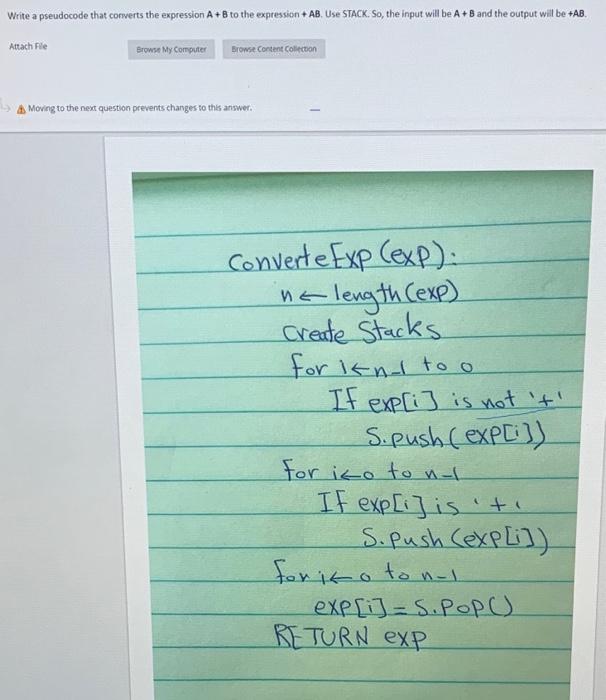 Write a pseudocode that converts the expression A + B to the expression + AB. Use STACK. So, the input will be A + B and the output will be +AB.
Attach File
Browse My Computer
Browse Content Collection
Moving to the next question prevents changes to this answer.
ConverteExp (exp):
n ← length (exp)
Create Stacks
for i ← n-1 to 0
If exp[i] is not '+'
S.push (exp[i])
for i ← 0 to n-1
If exp[i] is '+'
S.push (exp[i])
for i ← 0 to n-1
exp[i] = S.POP()
RETURN exp